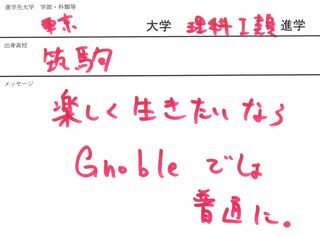 進学先大学 学部・科類等
東京 大学 理科Ⅰ類 進学
出身高校
筑駒
メッセージ
楽しく生きたいなら
Gnoble では
普通に。